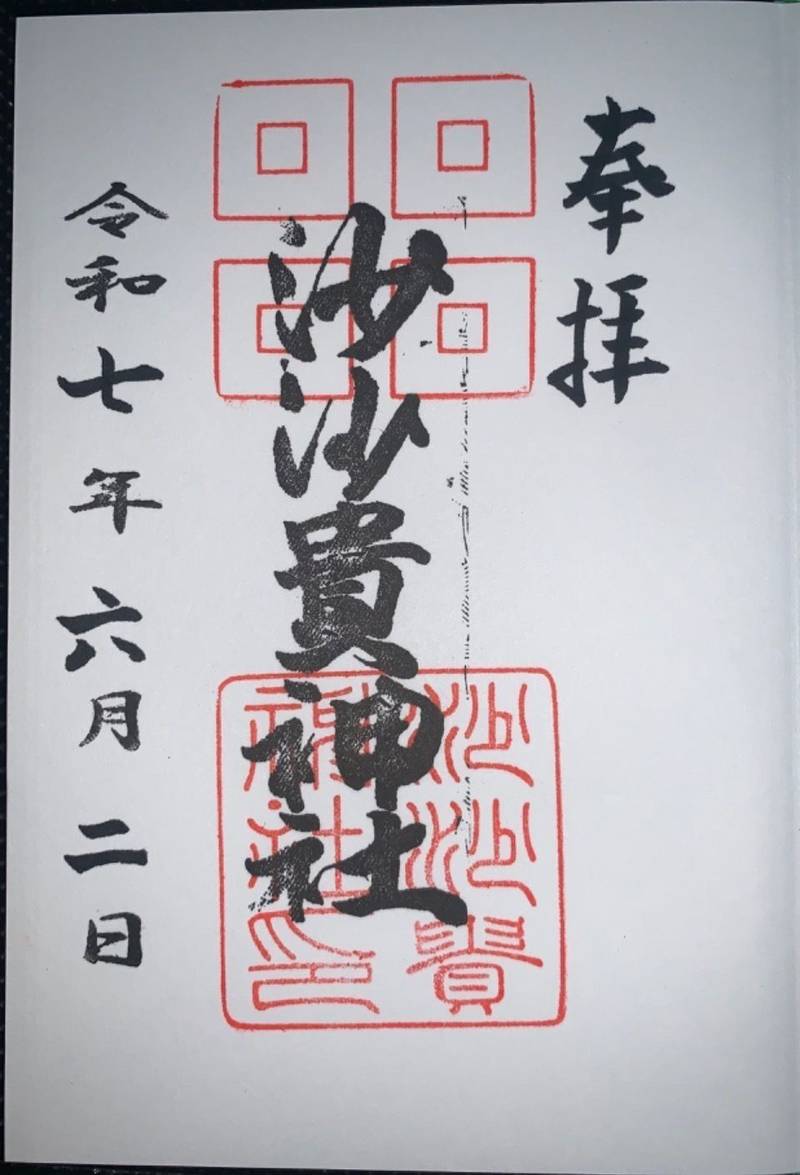 奉拝
沙沙貴神社
沙沙貴
神社印
令和七年六月二日